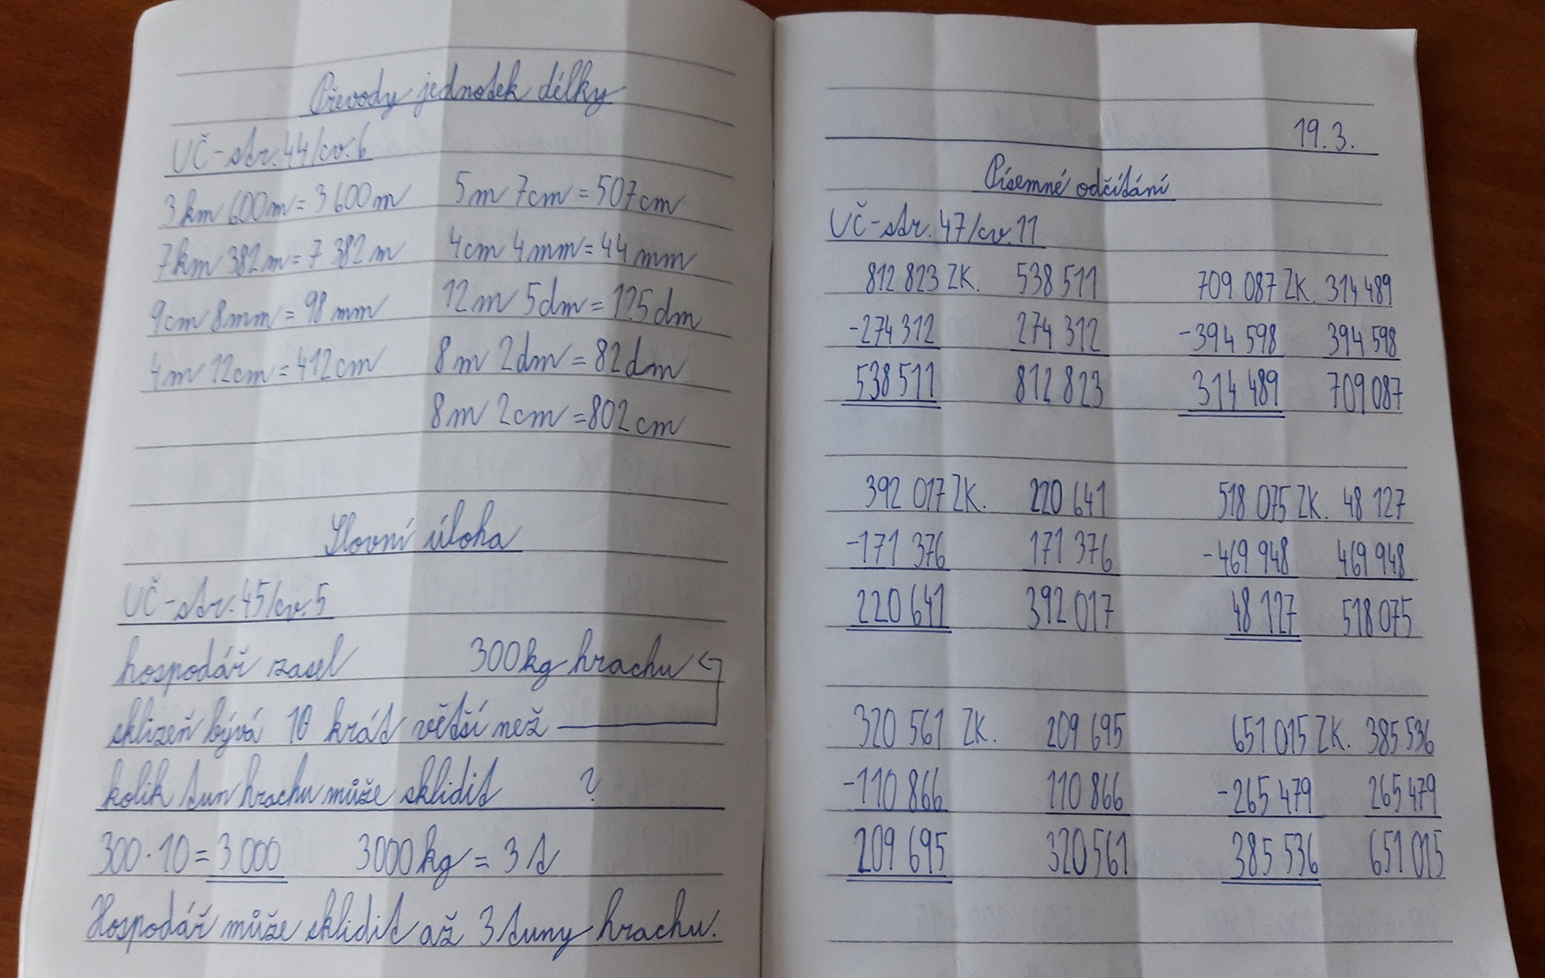 Převody jednotek délky
UČ-str.44/cv.6
3km 600m=3600m 5m 7cm=507cm
7km 382m=7 382m 4cm 4mm=44mm
9cm 8mm=98mm 12m 5dm=125dm
4m 12cm=412cm 8m 2dm=82dm
8m 2cm=802cm
Slovní úloha
UČ-str.45/cv.5
hospodář zasel 300kg hrachu
sklizeň bývá 10 krát větší než
kolik tun hrachu může sklidit ?
300·10=3 000 3000kg=3t
Hospodář může sklidit až 3 tuny hrachu.
19.3.
Písemné odčítání
UČ-str.47/cv.11
812 823 ZK. 538 511 709 087 ZK. 314 489
-274 312 274 312 -394 598 394 598
538 511 812 823 314 489 709 087
392 017 ZK. 220 641 518 075 ZK. 48 127
-171 376 171 376 -469 948 469 948
220 641 392 017 48 127 518 075
320 561 ZK. 209 695 651 015 ZK. 385 536
-110 866 110 866 -265 479 265 479
209 695 320 561 385 536 651 015